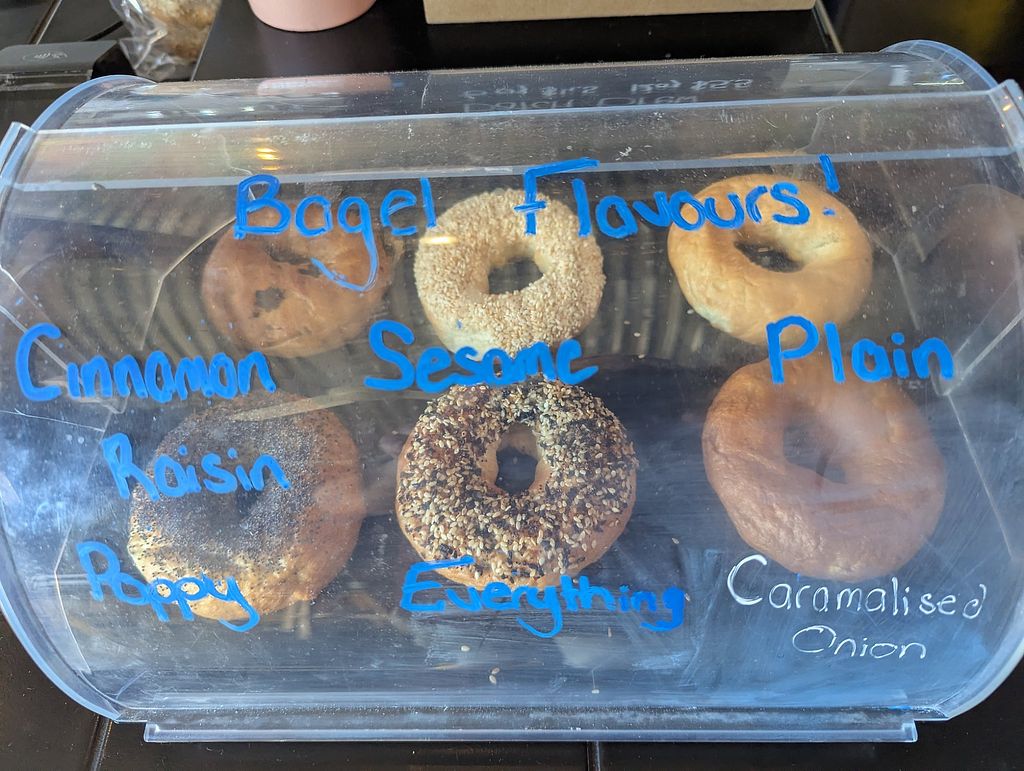 Bagel Flavours!
Cinnamon Raisin
Sesame
Plain
Poppy
Everything
Caramalised
Onion